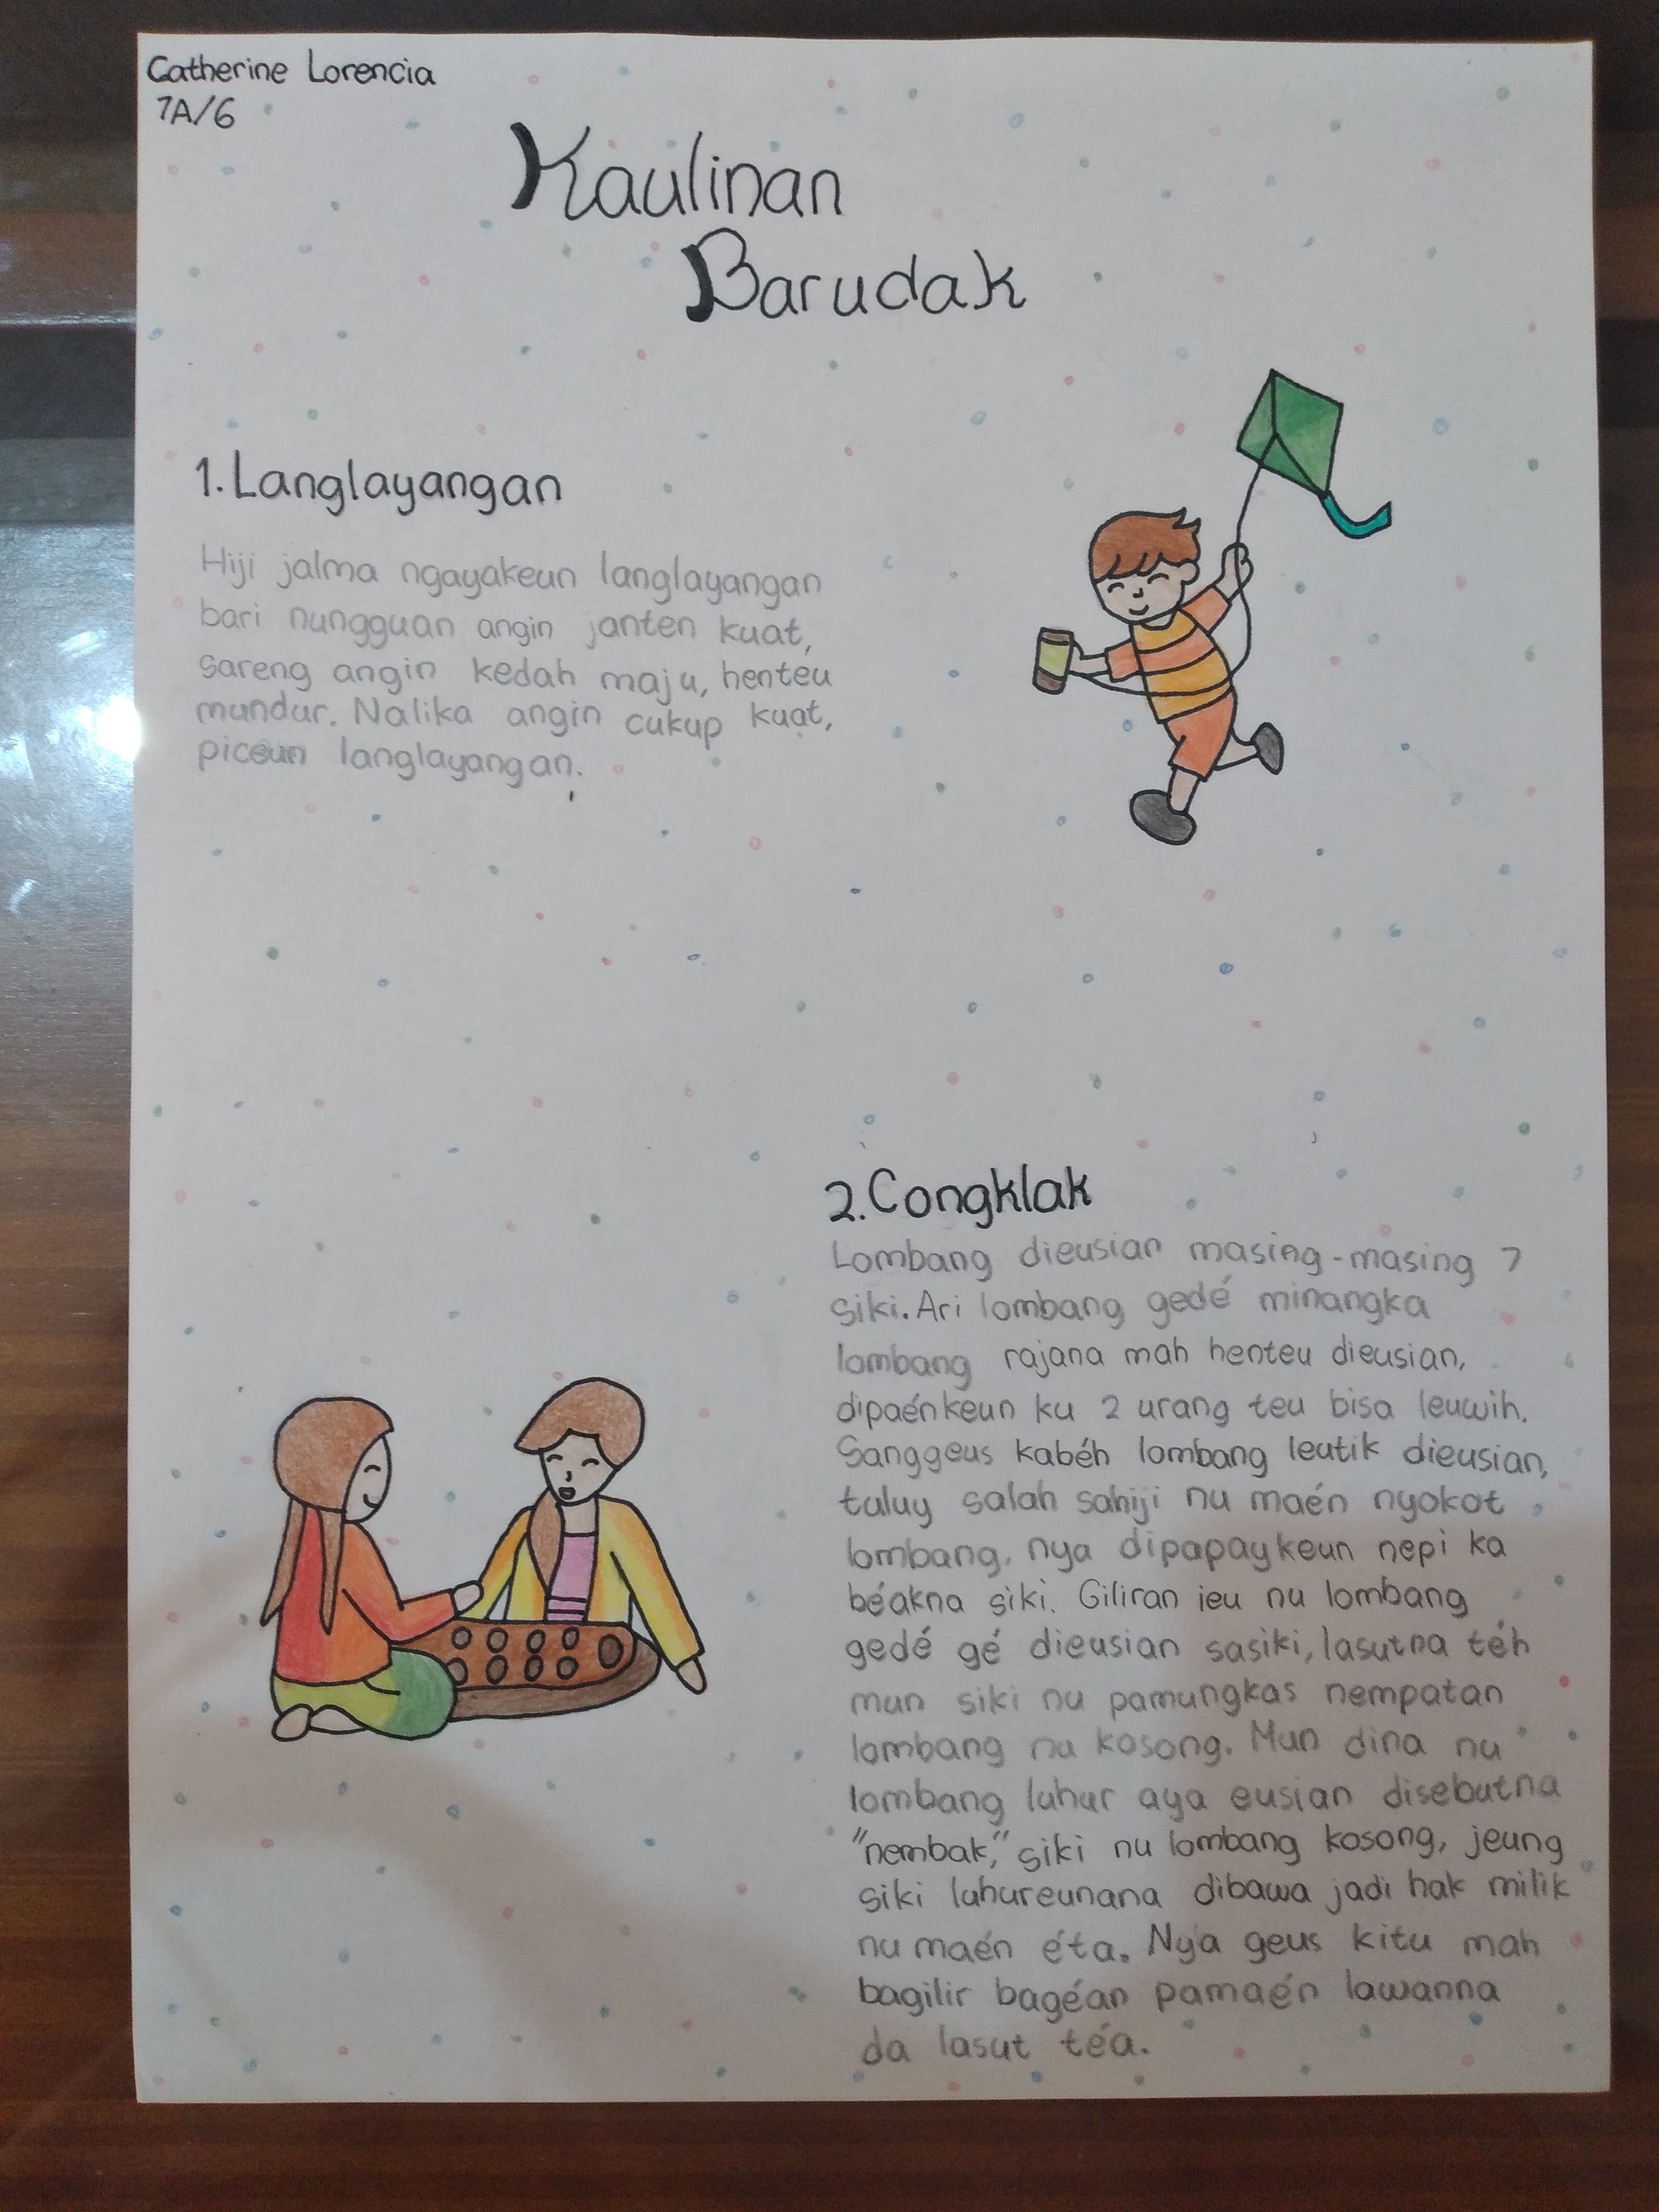 Catherine Lorencia
7A/6
Kaulinan
Barudak
1. Langlayangan
Hiji jalma ngayakeun langlayangan
bari nungguan angin janten kuat,
sareng angin kedah maju, henteu
mundur. Nalika angin cukup kuat,
piceun langlayangan.
2. Congklak
Lombang dieusian masing-masing 7
siki. Ari lombang gedé minangka
lombang rajana mah henteu dieusian,
dipaénkeun ku 2 urang teu bisa leuwih.
Sanggeus kabéh lombang leutik dieusian,
tuluy salah sahiji nu maén nyokot
lombang, nya dipapaykeun nepi ka
béakna siki. Giliran ieu nu lombang
gedé gé dieusian sasiki, lasutna téh
mun siki nu pamungkas nempatan
lombang nu kosong. Mun dina nu
lombang luhur aya eusian disebutna
"nembak," siki nu lombang kosong, jeung
siki luhureunana dibawa jadi hak milik
nu maén éta. Nya geus kitu mah
bagilir bagéan pamaén lawanna
da lasut téa.